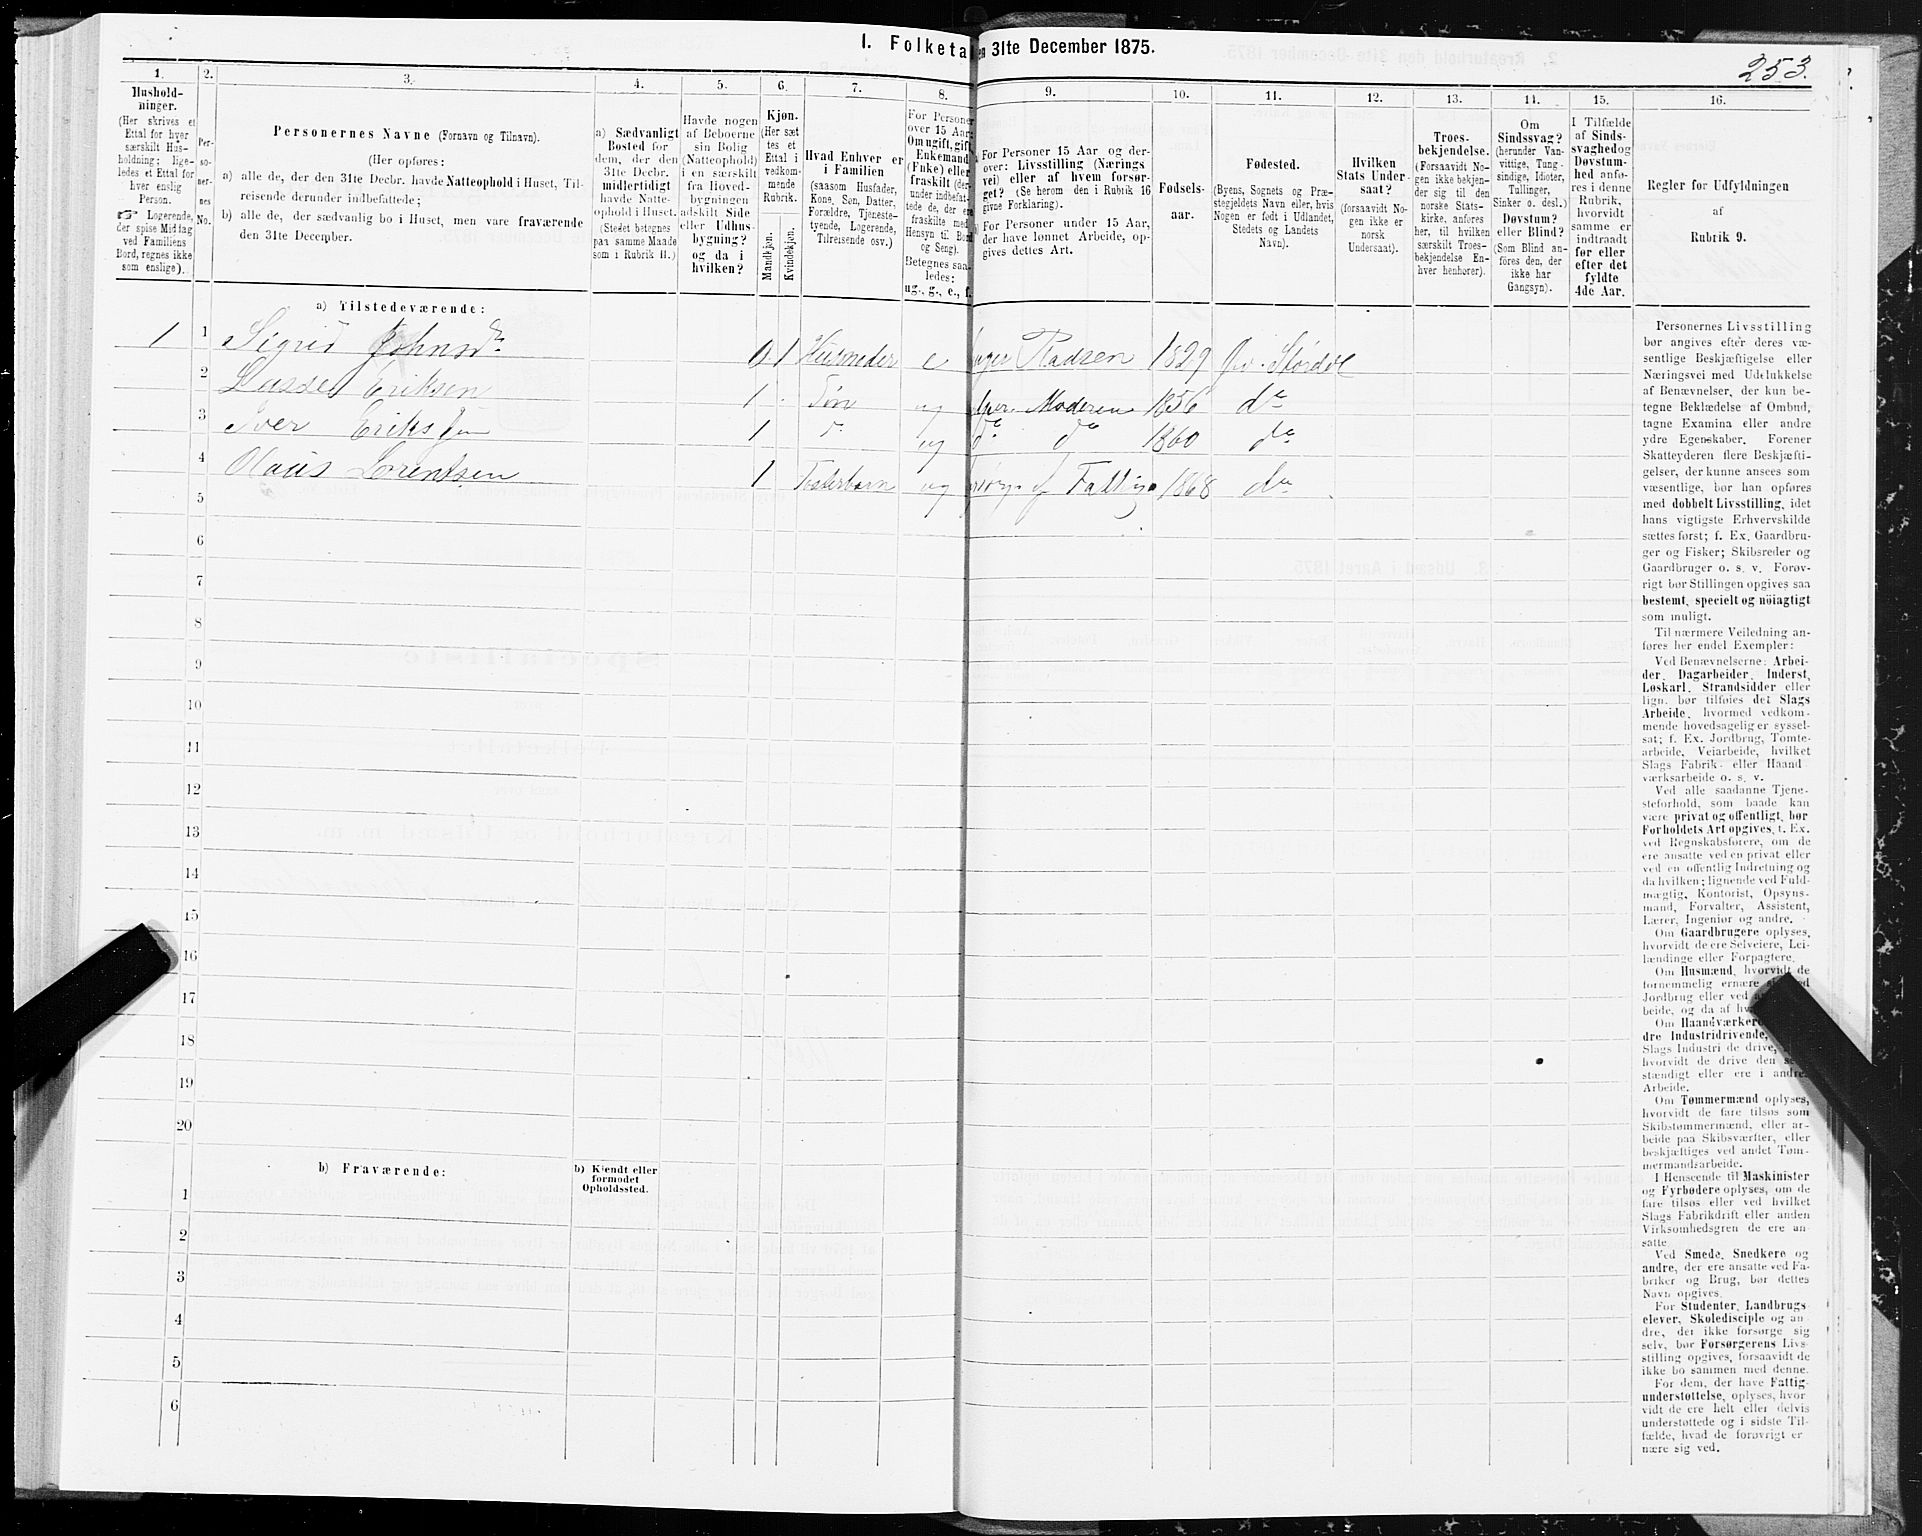 I. Folketa
en 31te December 1875.
253.
1.
2.
3.
4.
5.
6.
7.
8.
9.
10.
11.
12.
13.
14.
15.
16.
Hushold-
ninger.
(Her skrives et
Ettal for hver
særskilt Hus-
holdning; lige-
ledes et Ettal for
hver enslig
Person.
☞ Logerende,
der spise Middag
ved Familiens
Bord, regnes ikke
som enslige).
Per-
so-
ner-
nes
No.
Personernes Navne (Fornavn og Tilnavn).
(Her opføres:
a) alle de, der den 31te Decbr. havde Natteophold i Huset, Til-
reisende derunder indbefattede;
b) alle de, der sædvanlig bo i Huset, men vare fraværende
den 31te December.
a) Sædvanligt
Bosted for
dem, der den
31te Decbr.
midlertidigt
havde Natte-
ophold i Huset.
(Stedet betegnes
paa samme Maade
som i Rubrik 11.)
Havde nogen
af Beboerne
sin Bolig
(Natteophold)
i en særskilt
fra Hoved-
bygningen
adskilt Side
eller Udhus-
bygning?
og da i
hvilken?
Kjøn.
(Her sæt
tes et
Ettal i
vedkom-
mende
Rubrik.
Mandkjøn.
Kvindekjøn.
Hvad Enhver er
i Familien
(saasom Husfader,
Kone, Søn, Datter,
Forældre, Tjeneste-
tyende, Logerende,
Tilreisende osv.)
For Personer
over 15 Aar:
Om ugift, gift,
Enkemand
(Enke) eller
fraskilt (der-
under indbefat-
tede de, der ere
fraskilte med
Hensyn til Bord
og Seng).
Betegnes saa-
ledes:
ug., g., e., f.
For Personer 15 Aar og der-
over: Livsstilling (Nærings
vei) eller af hvem forsør-
get? (Se herom den i Rubrik 16
givne Forklaring).
For Personer under 15 Aar,
der have lønnet Arbeide, op-
gives dettes Art.
Fødsels-
aar.
Fødested.
(Byens, Sognets og Præ-
stegjeldets Navn eller, hvis
Nogen er født i Udlandet,
Stedets og Landets
Navn).
Hvilken
Stats Under-
saat?
(forsaavidt No-
gen ikke er
norsk
Undersaat).
Troes-
bekjendelse.
(Forsaavidt No-
gen ikke bekjen-
der sig til den
norske Stats-
kirke, anføres
her, til hvilken
særskilt Troes-
bekjendelse En-
hver henhører).
Om
Sindssvag?
(herunder Van-
vittige, Tung-
sindige, Idioter,
Tullinger,
Sinker o. desl.)
Døvstum?
eller Blind?
(Som Blind an-
føres den, der
ikke har
Gangsyn).
I Tilfælde
af Sinds-
svaghed og
Døvstum-
hed anfø-
res i denne
Rubrik,
hvorvidt
samme er
indtraadt
før eller
efter det
fyldte
4de Aar.
Regler for Udfyldningen
af
Rubrik 9.
a) Tilstedeværende:
1 1 Sigrid Johnsdr. 0 1 Husmoder e 1829
2 Lasse Eriksen 1 Søn ug Moderen 1856 do
3 Iver Eriksen 1 do ug do do 1860 do
4 Olaus Lorentsen 1 Fosterbarn ug 1868 do
5
6
7
8
9
10
11
12
13
14
15
16
17
18
19
20
b) Fraværende:
b) Kjendt eller
formodet
Opholdssted.
1
2
3
4
5
6
Personernes Livsstilling
bør angives efter deres væ-
sentlige Beskjæftigelse eller
Næringsvei med Udelukkelse
af Benævnelser, der kun be-
tegne Beklædelse af Ombud,
tagne Examina eller andre
ydre Egenskaber. Forener
Skatteyderen flere Beskjæfti-
gelser, der kunne ansees som
væsentlige, bør han opføres
med dobbelt Livsstilling, idet
hans vigtigste Erhvervskilde
sættes først; f. Ex. Gaardbru-
ger og Fisker; Skibsreder og
Gaardbruger o. s. v. Forøv-
rigt bør Stillingen opgives saa
bestemt, specielt og nöiagtigt
som muligt.
Til nærmere Veiledning an-
føres her endel Exempler:
Ved Benævnelserne: Arbei-
der, Dagarbeider, Inderst,
Løskarl, Strandsidder eller
lign. bør tilføies det Slags
Arbeide, hvormed vedkom-
mende hovedsagelig er syssel-
sat; f. Ex. Jordbrug, Tomte-
arbeide, Veiarbeide, hvilket
Slags Fabrik- eller Haand-
værksarbeide o. s. v.
Ved alle saadanne Tjene-
steforhold, som baade kan
være privat og offentligt, bør
Forholdets Art opgives, f. Ex.
ved Regnskabsførere, om de
ere ansatte ved en privat eller
ved en offentlig Indretning og
da hvilken; lignende ved Fuld-
mægtig, Kontorist, Opsyns-
mand, Forvalter, Assistent,
Lærer, Ingeniør og andre.
Om Gaardbrugere oplyses,
hvorvidt de ere Selveiere, Lei-
lændinge eller Forpagtere.
Om Husmænd, hvorvidt de
fornemmelig ernære
Jordbrug eller ved
beide, og da af
Om Haandværkere
dre Industridrivende,
Slags Industri de drive,
hvorvidt de drive den
stændigt eller ere i andres
Arbeide.
Om Tømmermænd oplyses,
hvorvidt de fare tilsøs som
Skibstømmermænd, eller ar-
beide paa Skibsværfter, eller
beskjæftiges ved andet Tøm-
mermandsarbeide.
I Henseende til Maskinister
og Fyrbødere oplyses, om de
fare tilsøs eller ved hvilket
Slags Fabrikdrift eller anden
Virksomhedsgren de ere an-
satte.
Ved Smede, Snedkere og
andre, der ere ansatte ved Fa-
briker og Brug, bør dettes
Navn opgives.
For Studenter, Landbrugs-
elever, Skoledisciple og an-
dre, der ikke forsørge sig
selv, bør Forsørgerens Livs-
stilling opgives, forsaavidt de
ikke bo sammen med denne.
For dem, der have Fattig-
understøttelse, oplyses, hvor
vidt de ere helt eller delvis
understøttede og i sidste Til-
fælde, hvad de forøvrigt er
nære sig ved.